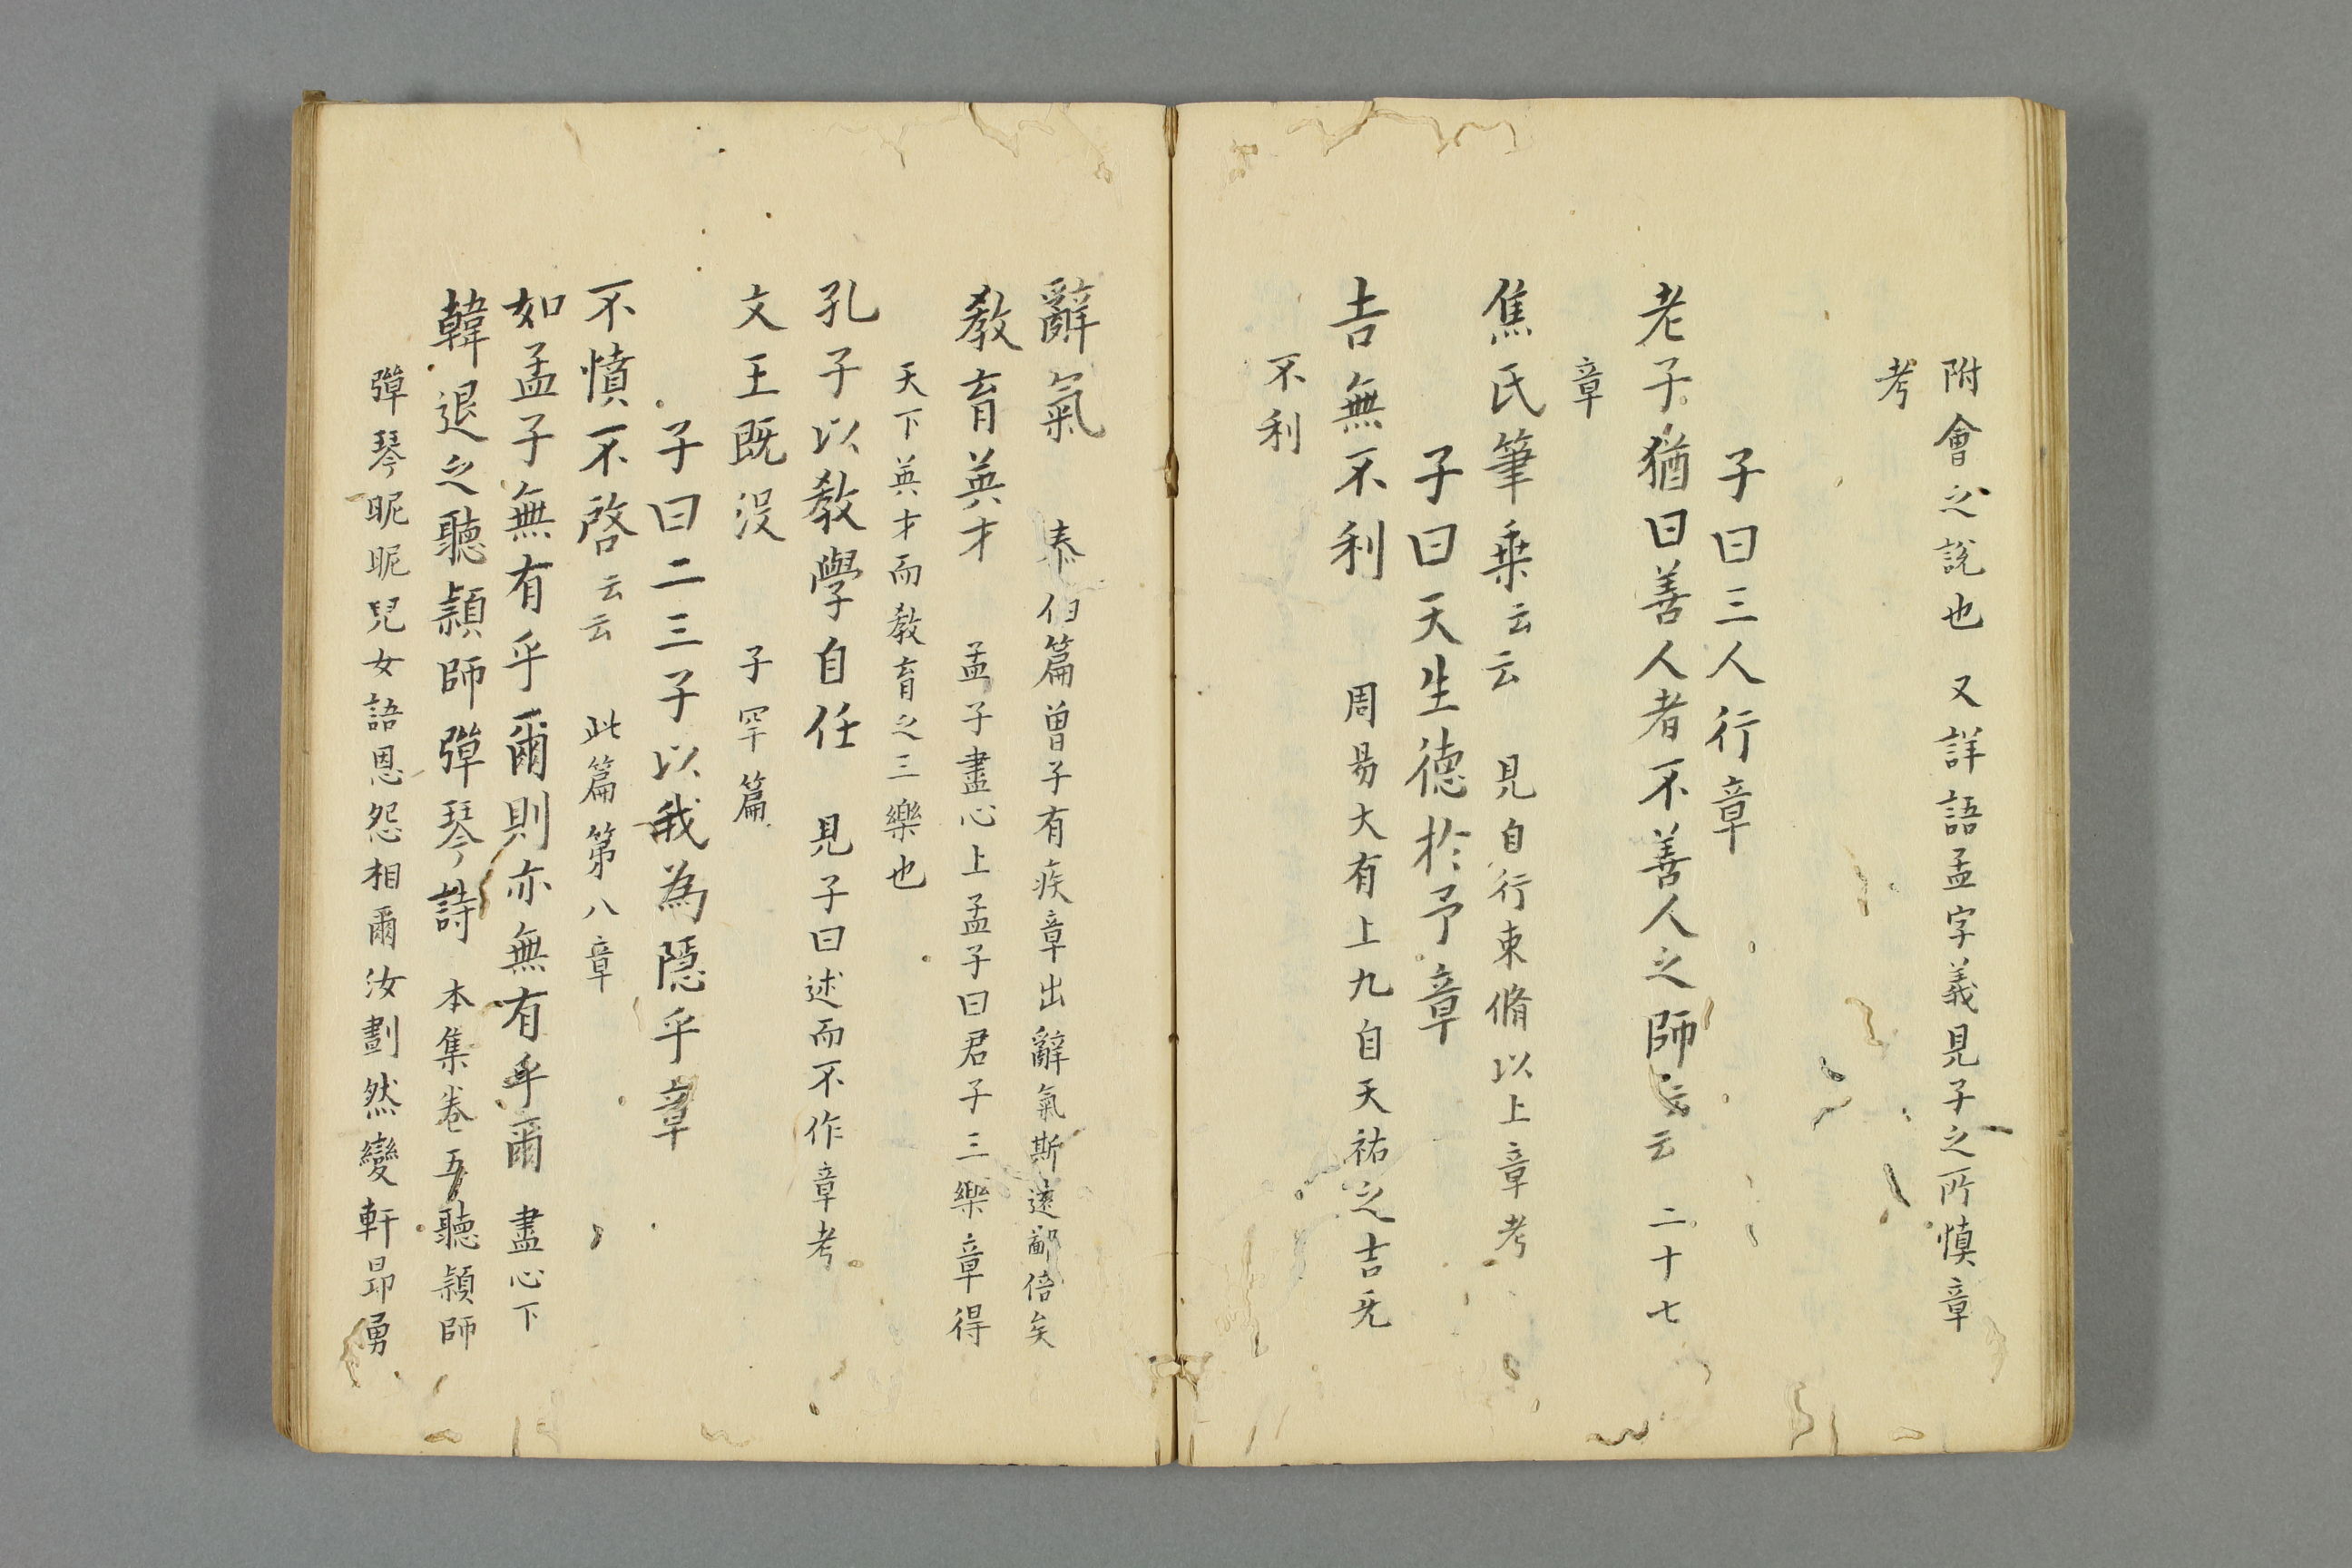 附會之説也又詳語孟字義見子之所慎章
考
子曰三人行章
老子猶曰善人者不善人之師云云二十七
章
焦氏筆乗云云見自行束脩以上章考
子曰天生徳於予章
吉無不利周易大有上九自天祐之吉无
不利
辭氣泰伯篇曽子有疾章出辭氣斯遠鄙倍矣
教育英才孟子盡心上孟子曰君子三樂章得
天下英才而教育之三樂也
孔子以教學自任見子曰述而不作章考
文王既没子罕篇
子曰二三子以我為隠乎章
不憤不啓云云此篇第八章
如孟子無有乎爾則亦無有乎爾盡心下
韓退之聽穎師弾琴詩本集巻五聽穎師
弾琴昵昵兒女語恩怨相爾汝劃然變軒昂勇